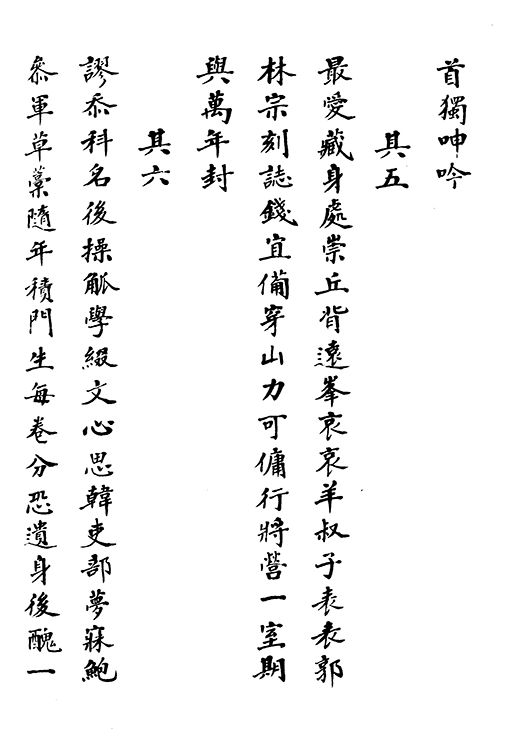 首獨呻吟
其五
最愛藏身處崇丘背遠峯哀哀羊叔子表表郭
林宗刻誌錢宜備穿山力可傭行將營一室期
與萬年封
其六
謬忝科名後操觚學綴文心思韓吏部夢寐鮑
叅軍草藁隨年積門生每卷分恐遺身後醜一